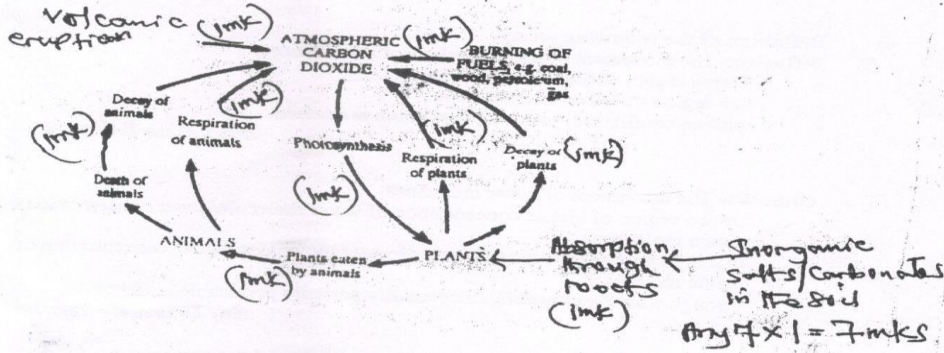 Volcanic
eruption
(1mk)
ATMOSPHERIC
CARBON
DIOXIDE
(1mk)
BURNING OF
FUELS, e.g. coal,
wood, petroleum,
gas
Decay of
animals
(1mk)
(1mk)
Respiration
of animals
Photosynthesis
(1mk)
(1mk)
Respiration
of plants
Decay of
plants
(1mk)
Death of
animals
ANIMALS
Plants eaten
by animals
(1mk)
PLANTS
Absorption
through
roots
(1mk)
Inorganic
salts/Carbonates
in the soil
Any 7 x 1 = 7mks